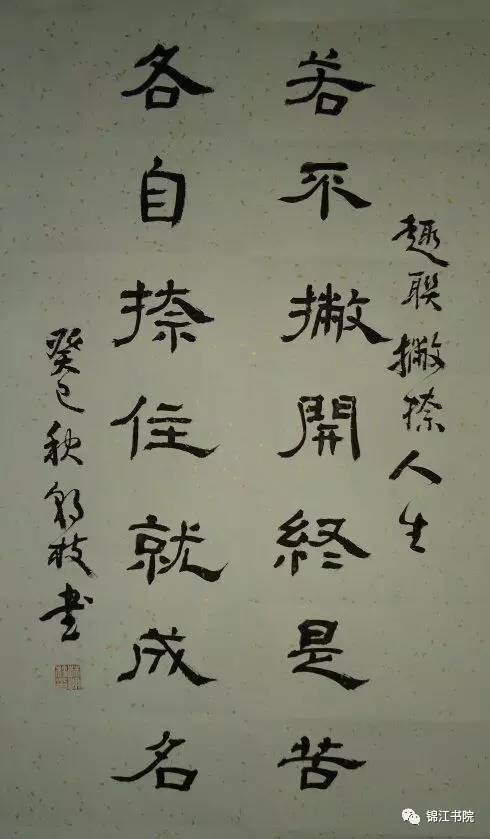 趣联撇捺人生
若不撇開終是苦
各自捺住就成名
癸巳秋
枝書
锦江书院